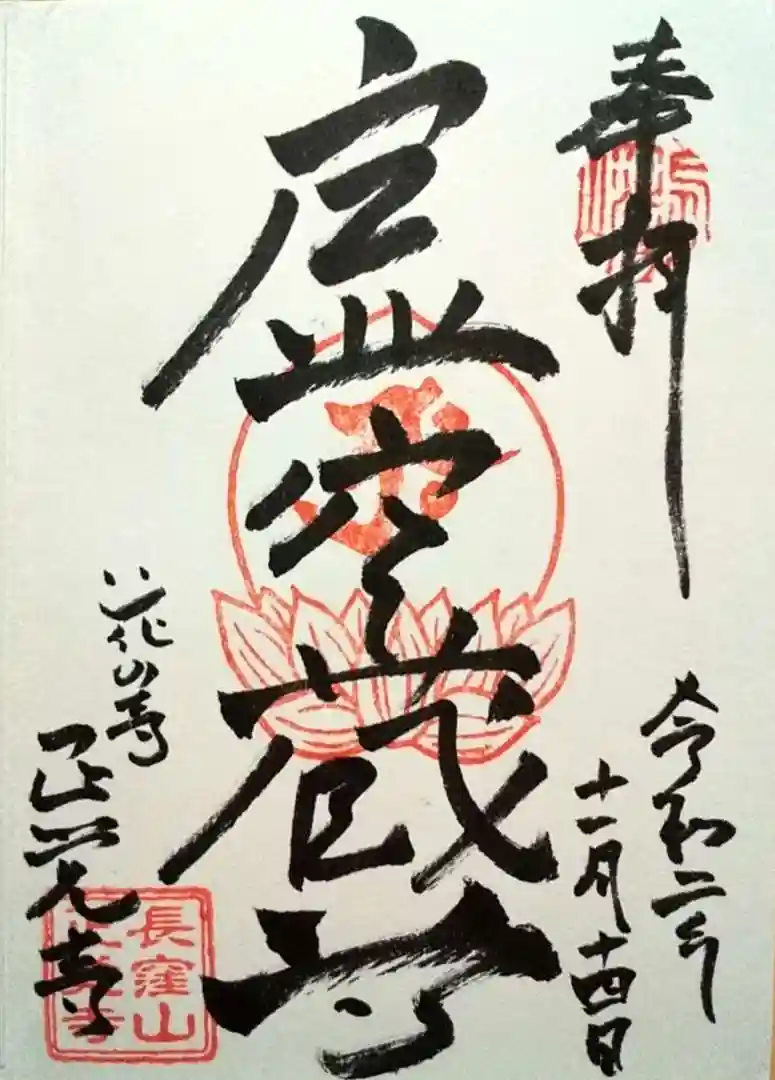 奉拝
令和二年
十一月十四日
虚空蔵尊
正覚寺
長窪山
正覚寺